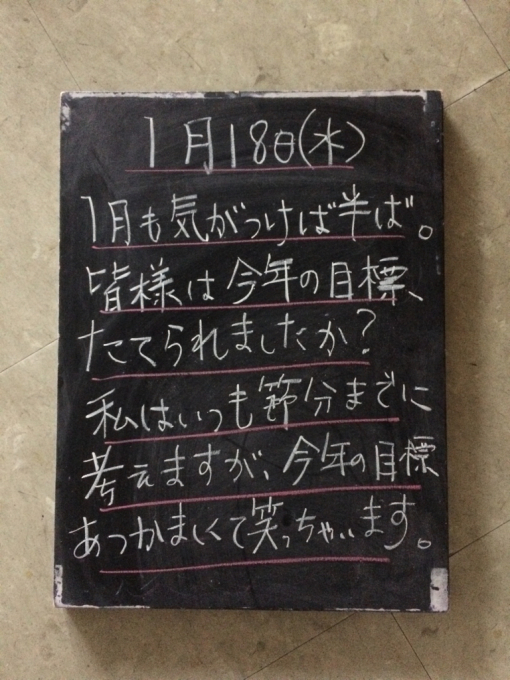 1月18日(水)
1月も気がつけば半ば。
皆様は今年の目標、
たてられましたか?
私はいつも節分までに
考えますが、今年の目標
あつかましくて笑っちゃいます。